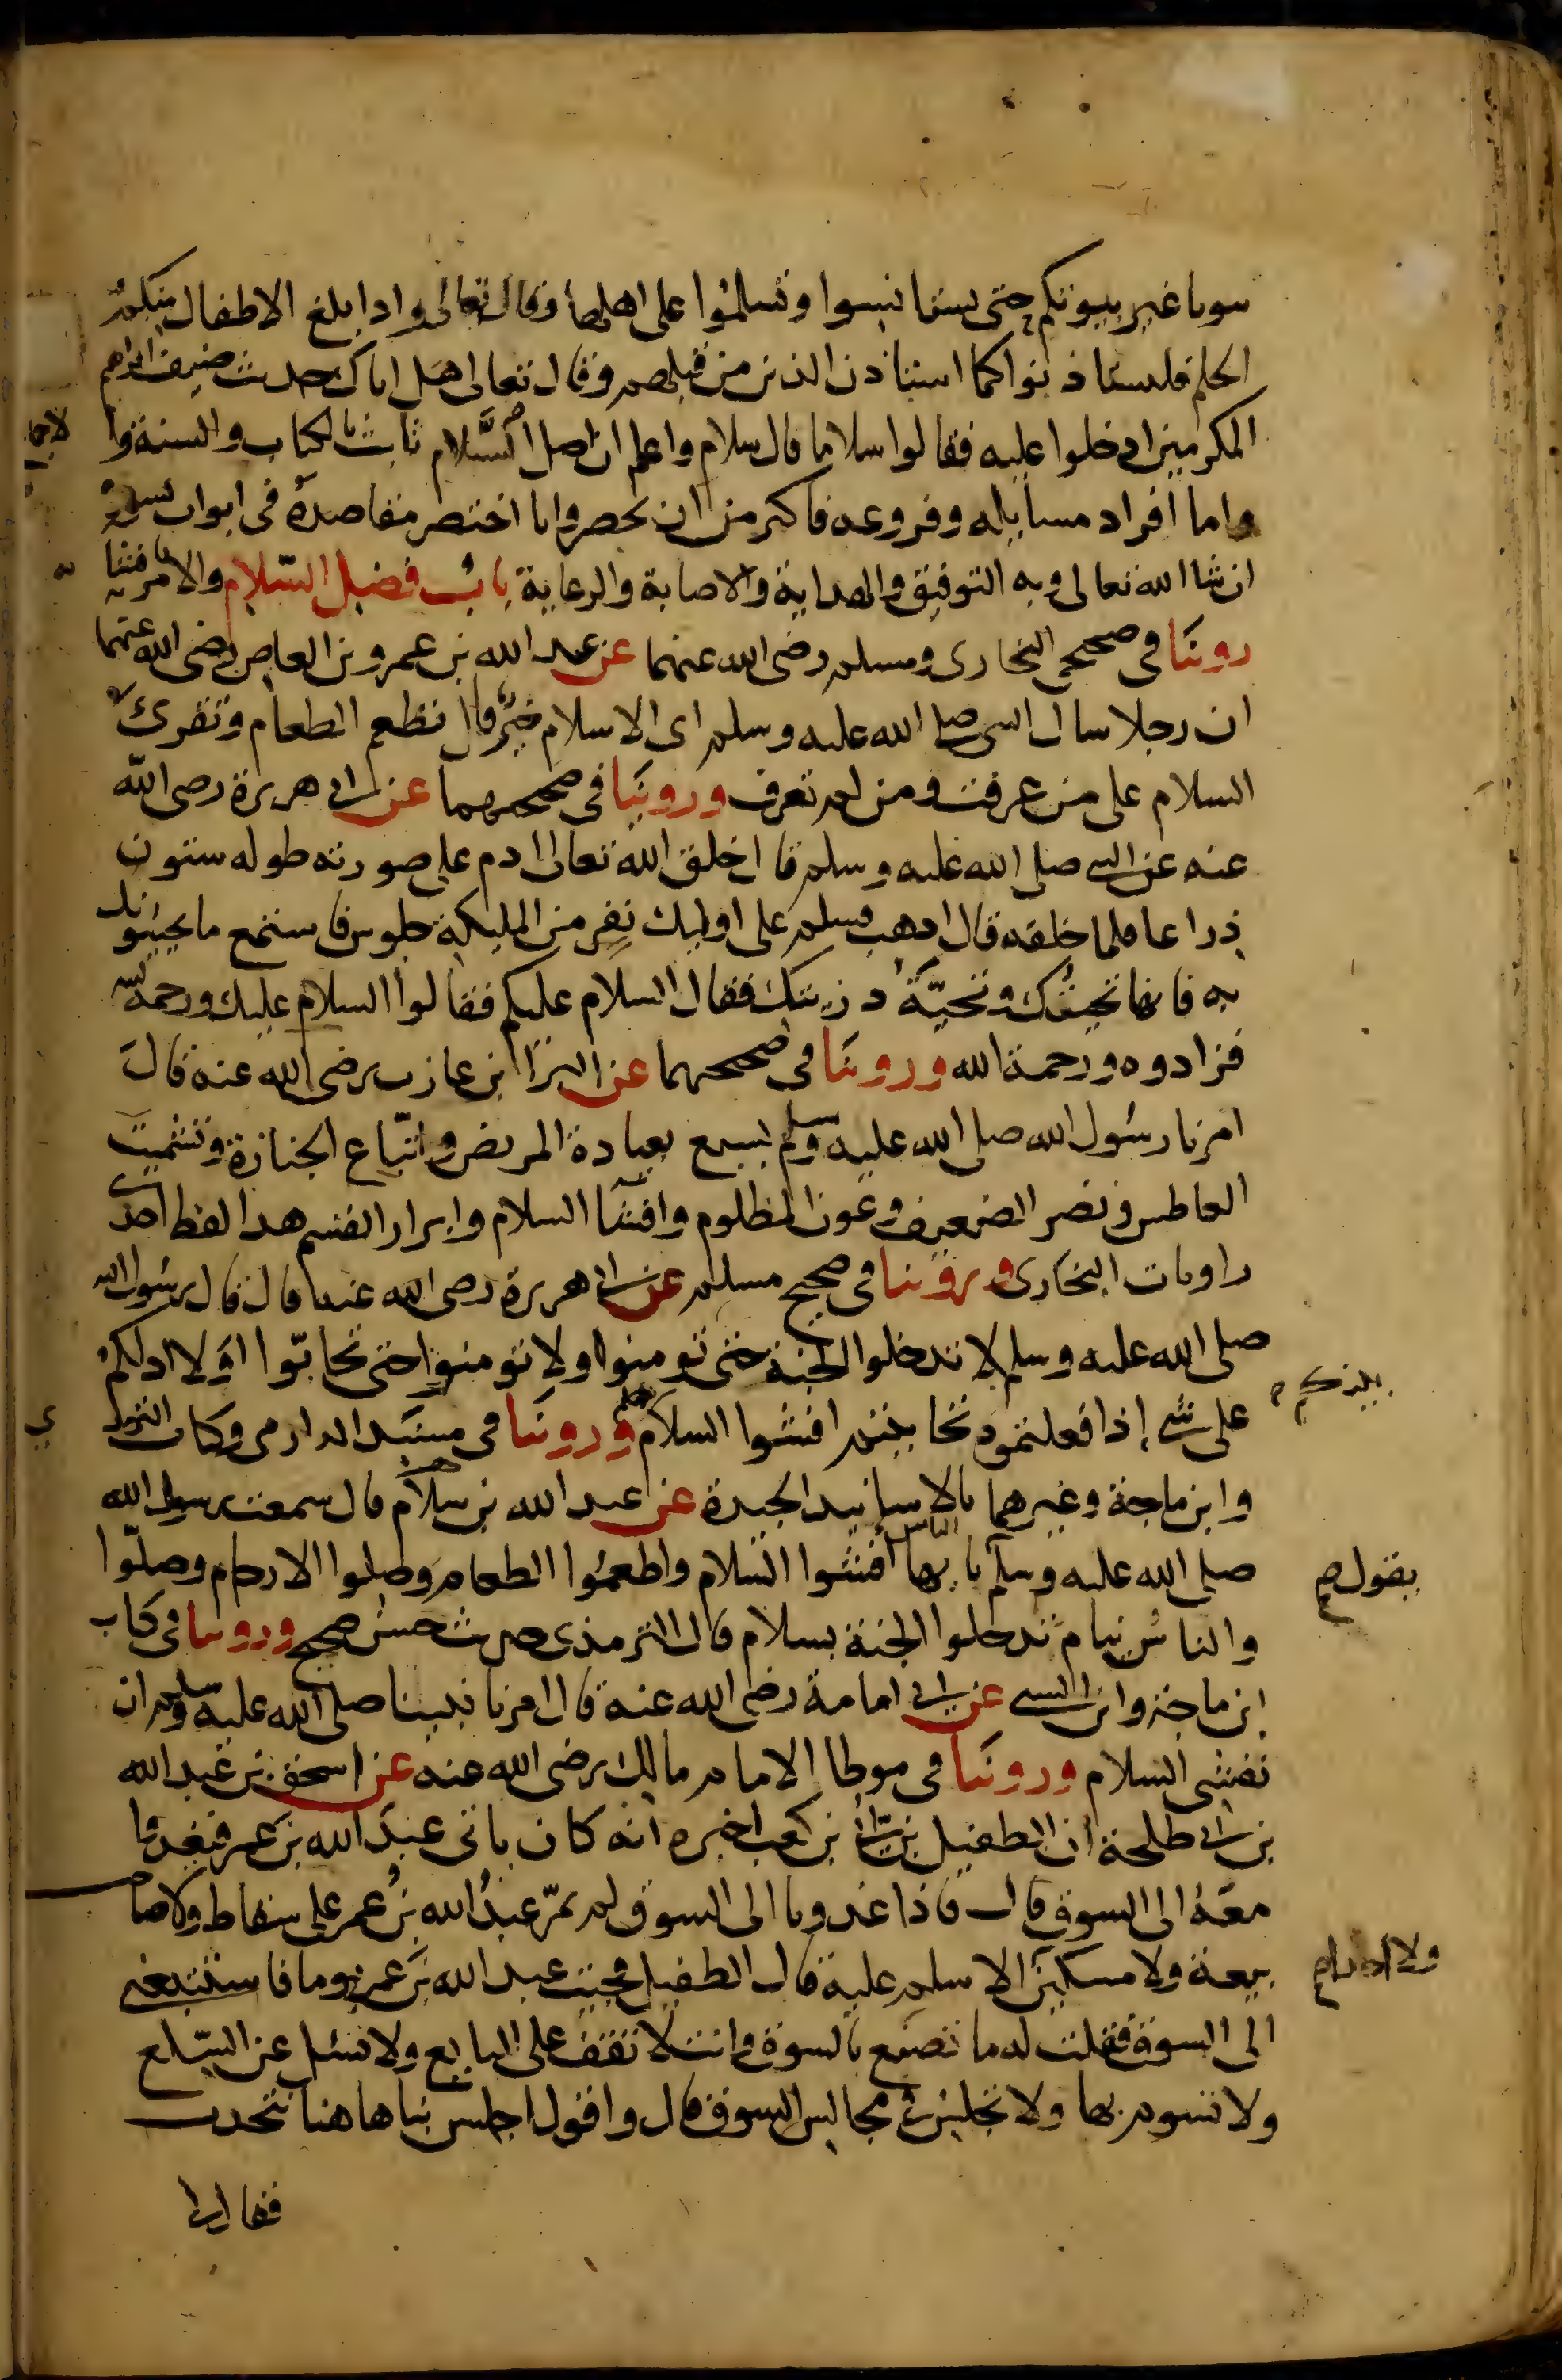 بيوتا غير بيوتكم حتى تستانسوا وتسلموا على اهلها وقال تعالى واذا بلغ الاطفال منكم
الحلم فليستاذنوا كما استاذن الذين من قبلهم وقال تعالى هل اتاك حديث ضيف ابراهيم
المكرمين اذ دخلوا عليه فقالوا سلاما قال سلام واعلم ان اصل السَّلام ثابت بالكتاب والسنة وا
لاجماع
واما افراد مسايله وفروعه فاكثر من ان تحصر وانا اختصر مقاصده فى ابواب يسيرة
ان شا الله تعالى وبه التوفيق والهداية والاصابة والرعاية باب فضل السّلام والامر بافشائه
روينا فى صحيحي البخارى ومسلم رضى الله عنهما عن عبد الله بن عمرو بن العاص رضى الله عنهما
ان رجلا سال النبى صلى الله عليه وسلم اى الاسلام خير قال تطعم الطعام وتقرئ
السلام على من عرفت ومن لم تعرف وروينا فى صحيحهما عن ابى هريرة رضى الله
عنه عن النبى صلى الله عليه وسلم قا ل خلق الله تعالى ادم على صورته طوله ستون
ذراعا فلما خلقه قال اذهب فسلم على اوليك نفر من المليكة جلوس فاستمع ما يحيونك
به فانها تحيتك وتحيّة ذريتك فقال السلام عليكم فقالوا السلام عليك ورحمة الله
فزادوه ورحمة الله وروينا فى صحيحهما عن البرا ابن عازب رضى الله عنه قال
امرنا رسُول الله صلى الله عليه وسلم بسبع بعيادة المريض واتّباع الجنازة وتشميت
العاطس ونصر الضعيف وعون المظلوم وافشا السلام وابرار القسم هذا لفظ احدى
راويات البخارى وروينا فى صحيح مسلم عن ابى هريرة رضى الله عنه قال قال رسُول الله
صلى الله عليه وسلم لا تدخلوا الجنة حتى تومنوا ولا تومنوا حتى تحابّوا اوَلا ادلكم
على شى إذا فعلتموه تحاببتم افشوا السلام وروينا فى مسند الدارمى وكتاب الترمذ
ى
بينكم
وابن ماجة وغيرهما بالاسانيد الجيدة عن عبد الله بن سلام قال سمعت رسول الله
صلى الله عليه وسلم يا يها الناس افشوا السّلام واطعمُوا الطعام وصلوا الارحام وصلّوا
يقول صح
والناسُ نيام تدخلوا الجنة بسلام قال الترمذى حديث حسن صحيح وروينا فى كتاب
ابن ماجة وابن السنى عن ابى امامة رضى الله عنه قال امرنا نبينا صلى الله عليه وسلم ان
نفشى السلام وروينا فى موطا الامام مالك رضى الله عنه عن اسحق بن عبد الله
بن ابى طلحة ان الطفيل بن ابىّ بن كعب اخبره انه كان ياتى عبدَ الله بن عمر فيغدوا
معَهُ الى السوق قال فاذا غدونا الى السوق لم يمرّ عبدُ الله بنُ عمر على سقاط ولا صاحب
بيعة ولا مسكين الا سلم عليه قال الطفيل فجيت عبد الله بن عمر يوما فاستتبعنى
الى السوق فقلت له ما تصنع بالسوق وانت لا تقف على البايع ولا تسئل عن السّلع
ولا تسوم بها ولا تجلس فى مجالس السوق قال واقول اجلس بنا هاهنا نتحدث
فقال لى